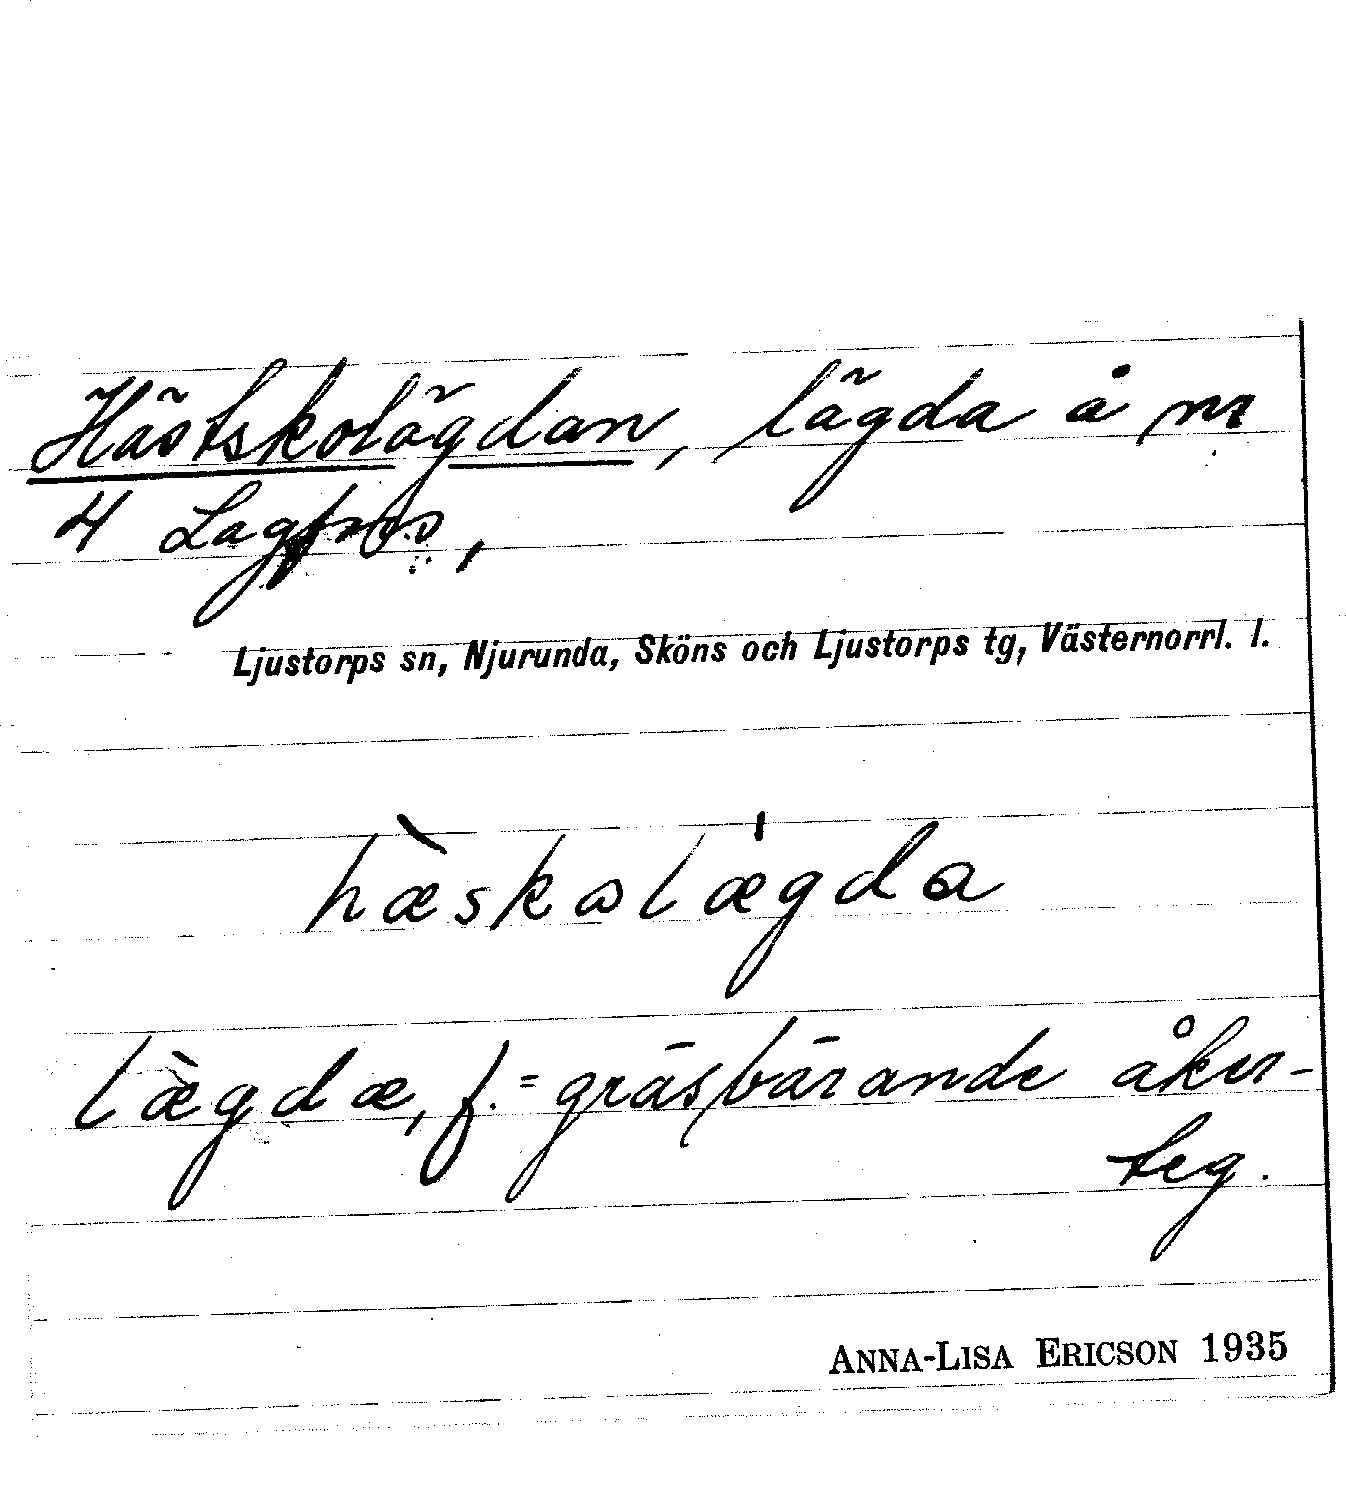 Hästskolägdan, lägda å nr
4 Lagfors,
Ljustorps sn, Njurunda, Sköns och Ljustorps tg, Västernorrl. l.
hæ̀skωlæ̍gda
læ̀gdæ, f. = gräsbärande åker-
teg.
ANNA-LISA ERICSON 1935